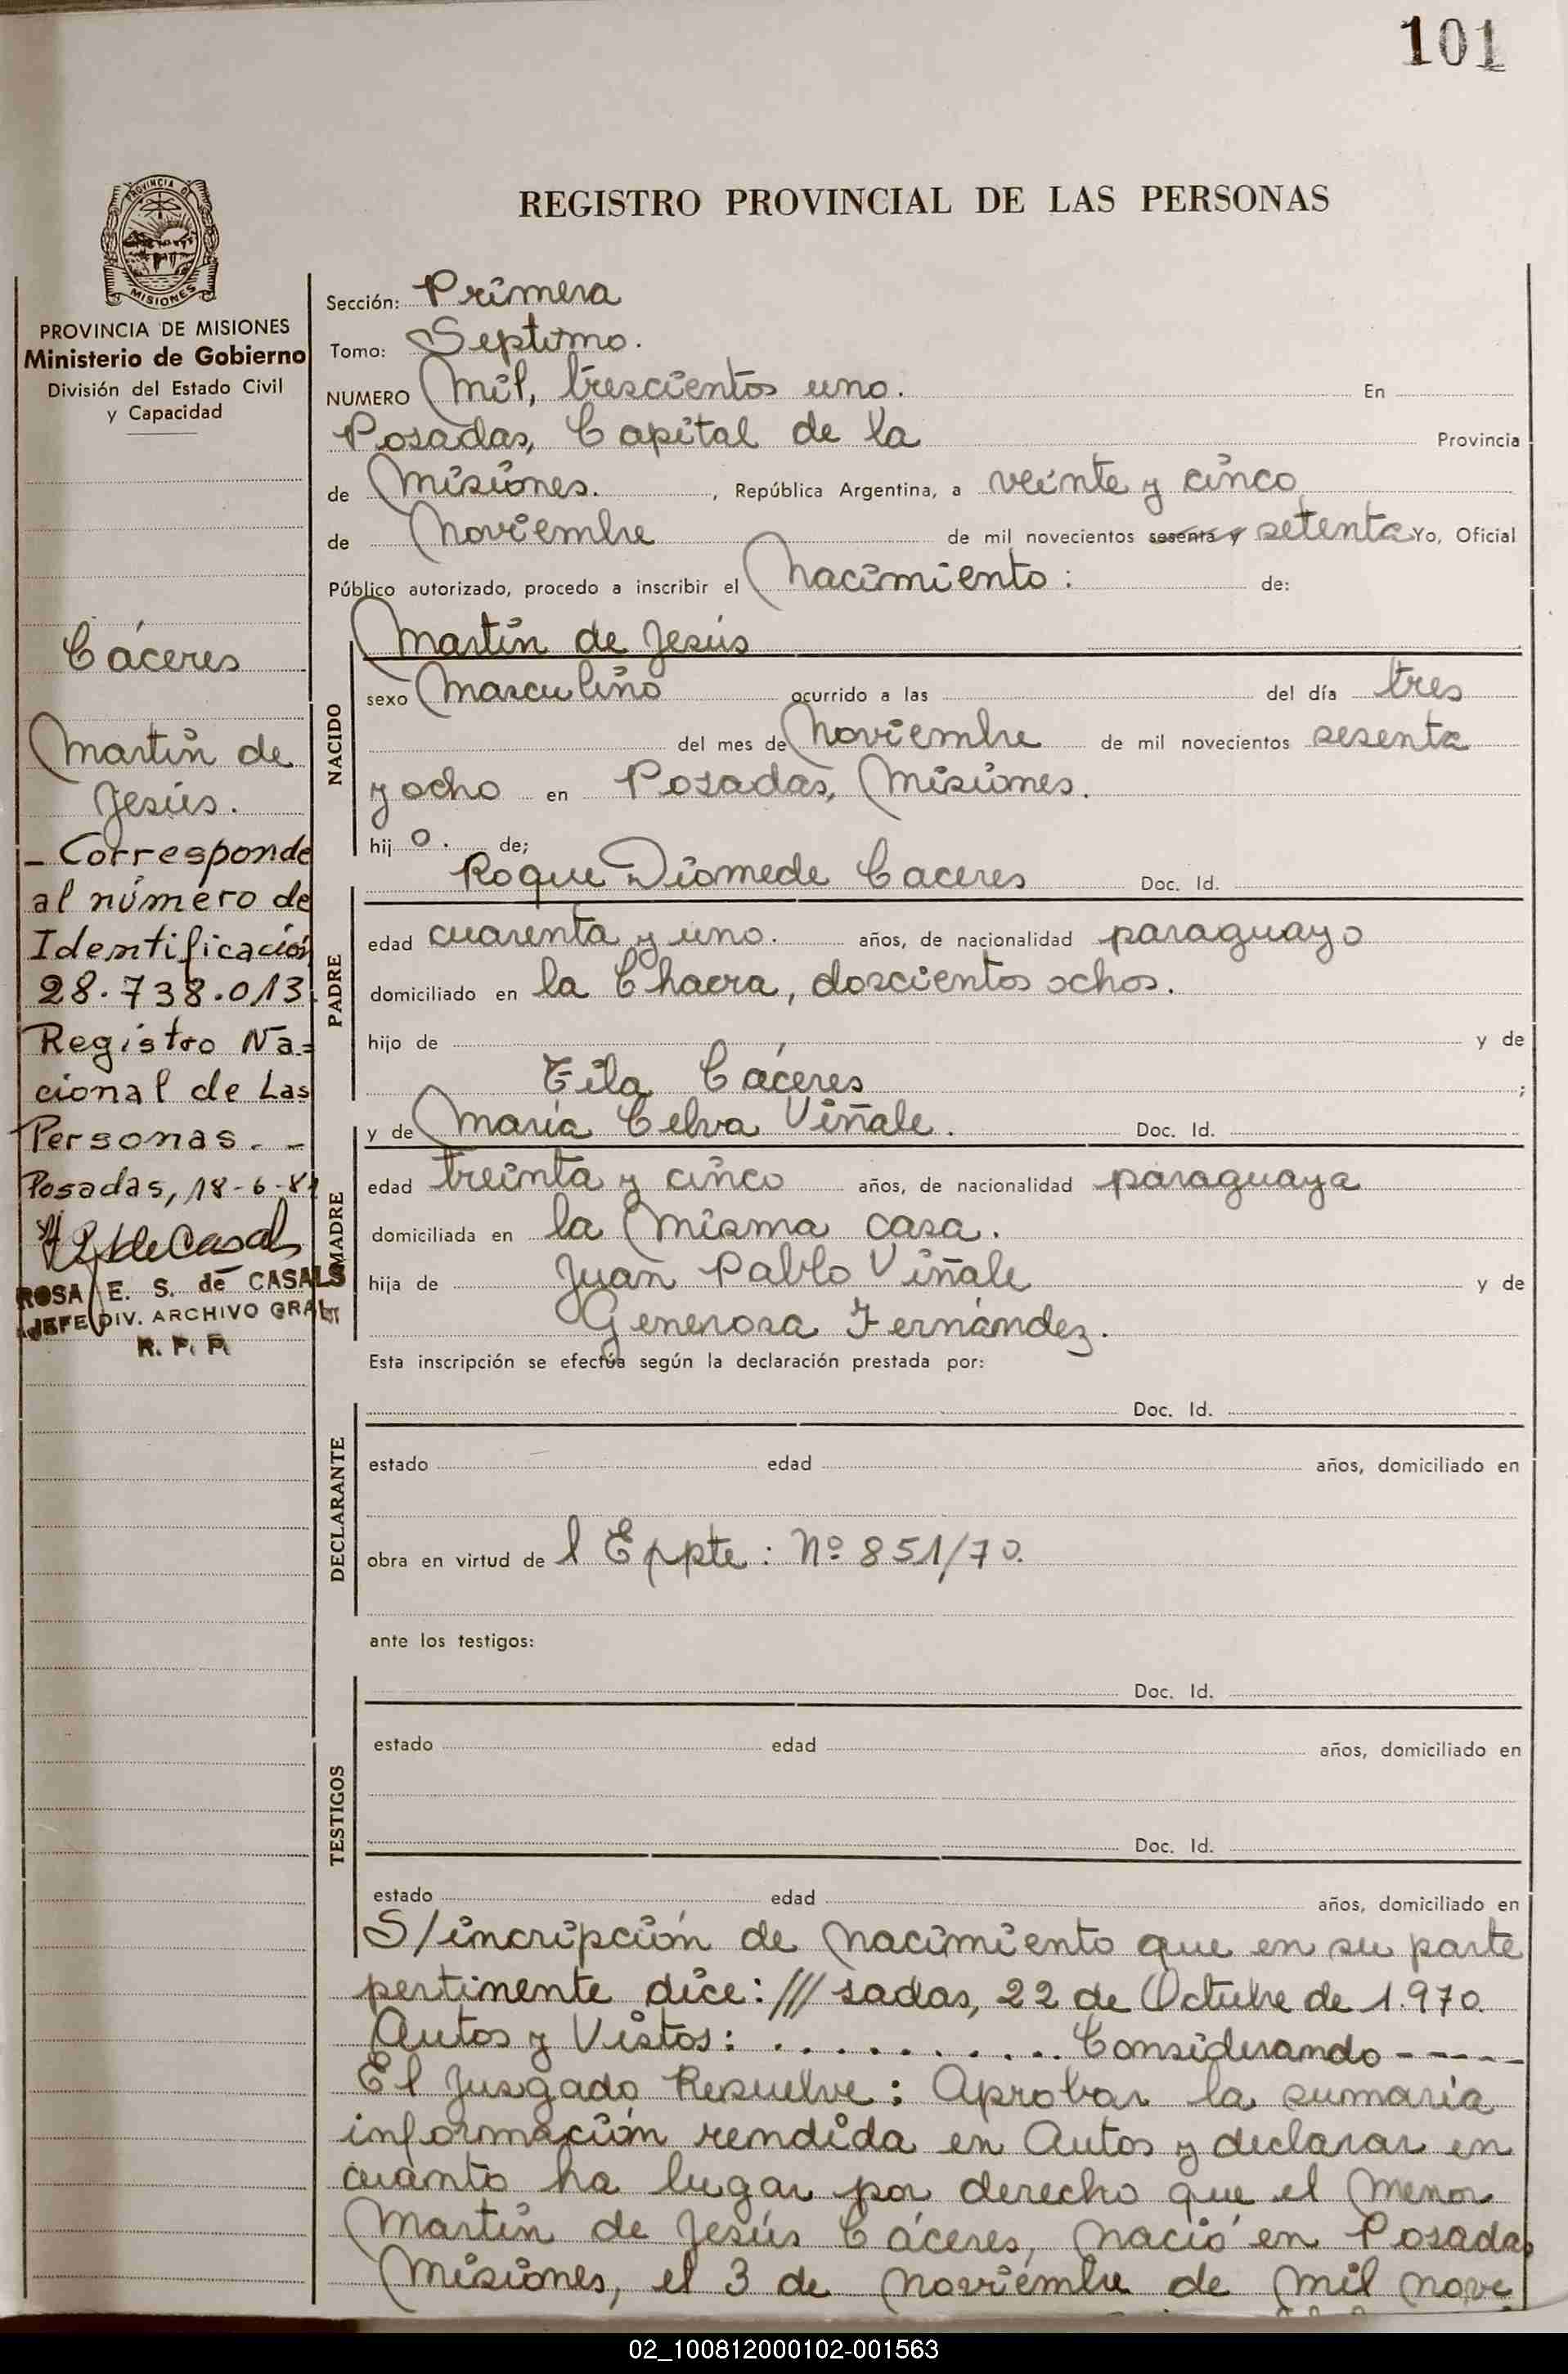 101
REGISTRO PROVINCIAL DE LAS PERSONAS
PROVINCIA DE MISIONES
PROVINCIA DE MISIONES
Ministerio de Gobierno
División del Estado Civil
y Capacidad
Cáceres
Martín de
Jesús.
- Corresponde
al número de
Identificación
28.738.013.
Registro Na=
cional de Las
Personas. -
Posadas, 18-6-81
ROSA E. S. de CASALS
JEFE DIV. ARCHIVO GRAL
R. P. P.
Sección: Primera
Tomo: Septimo.
NUMERO Mil, trescientos uno. En
Posadas, Capital de la Provincia
de Misiones. , República Argentina, a veinte y cinco
de Noviembre de mil novecientos sesenta y setenta Yo, Oficial
Público autorizado, procedo a inscribir el Nacimiento: de:
Martín de Jesús
NACIDO
sexo Masculino ocurrido a las del día tres
del mes de Noviembre de mil novecientos sesenta
y ocho en Posadas, Misiones.
hij o. de;
Roque Diomede Caceres Doc. Id.
PADRE
edad cuarenta y uno. años, de nacionalidad paraguayo
domiciliado en la Chacra, doscientos ochos.
hijo de y de
Tila Cáceres ;
y de María Celva Viñale. Doc. Id.
MADRE
edad treinta y cinco años, de nacionalidad paraguaya
domiciliada en la misma casa.
hija de Juan Pablo Viñale y de
Generosa Fernández.
Esta inscripción se efectúa según la declaración prestada por:
Doc. Id.
DECLARANTE
estado edad años, domiciliado en
obra en virtud de l Eppte: Nº 851/70.
ante los testigos:
Doc. Id.
TESTIGOS
estado edad años, domiciliado en
Doc. Id.
estado edad años, domiciliado en
S/incripción de Nacimiento que en su parte
pertinente dice: /// sadas, 22 de Octubre de 1.970.
Autos y Vistos: . . . . . . . . . . . Considerando -----
El Jusgado Resuelve: Aprobar la sumaria
información rendida en Autos y declarar en
cuanto ha lugar por derecho que el Menor
Martín de Jesús Cáceres, nació en Posadas
Misiones, el 3 de Noviembre de mil nove
02_100812000102-001563